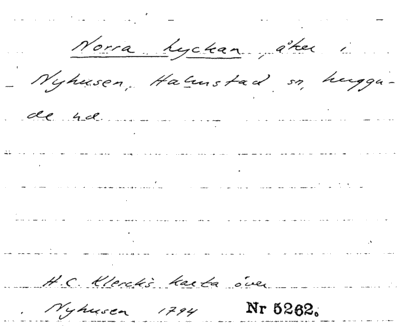 Norra Lyckan, åker i
Nyhusen, Halmstad sn, Luggu-
de hd
H.C. Klercks karta över
Nyhusen 1794 Nr 5262.